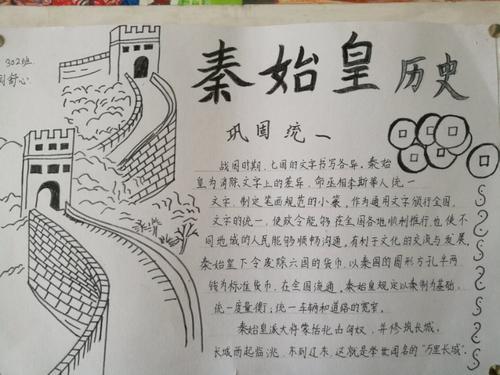 302班
秦始皇 历史
巩固统一
战国时期,七国的文字书写各异,秦始
皇为消除文字上的差异,命丞相李斯等人统一
文字,制定笔画规范的小篆,作为通用文字颁行全国,
文字的统一,使政令能够在全国各地顺利推行,也使不
同地域的人民能够顺畅沟通,有利于文化的交流与发展,
秦始皇下令废除六国的货币,以秦国的圆形方孔半两
钱为标准货币,在全国流通,秦始皇规定以秦制为基础,
统一度量衡;统一车辆和道路的宽窄。
秦始皇派大将蒙恬北击匈奴,并修筑长城,
长城西起临洮,东到辽东,这就是举世闻名的"万里长城".